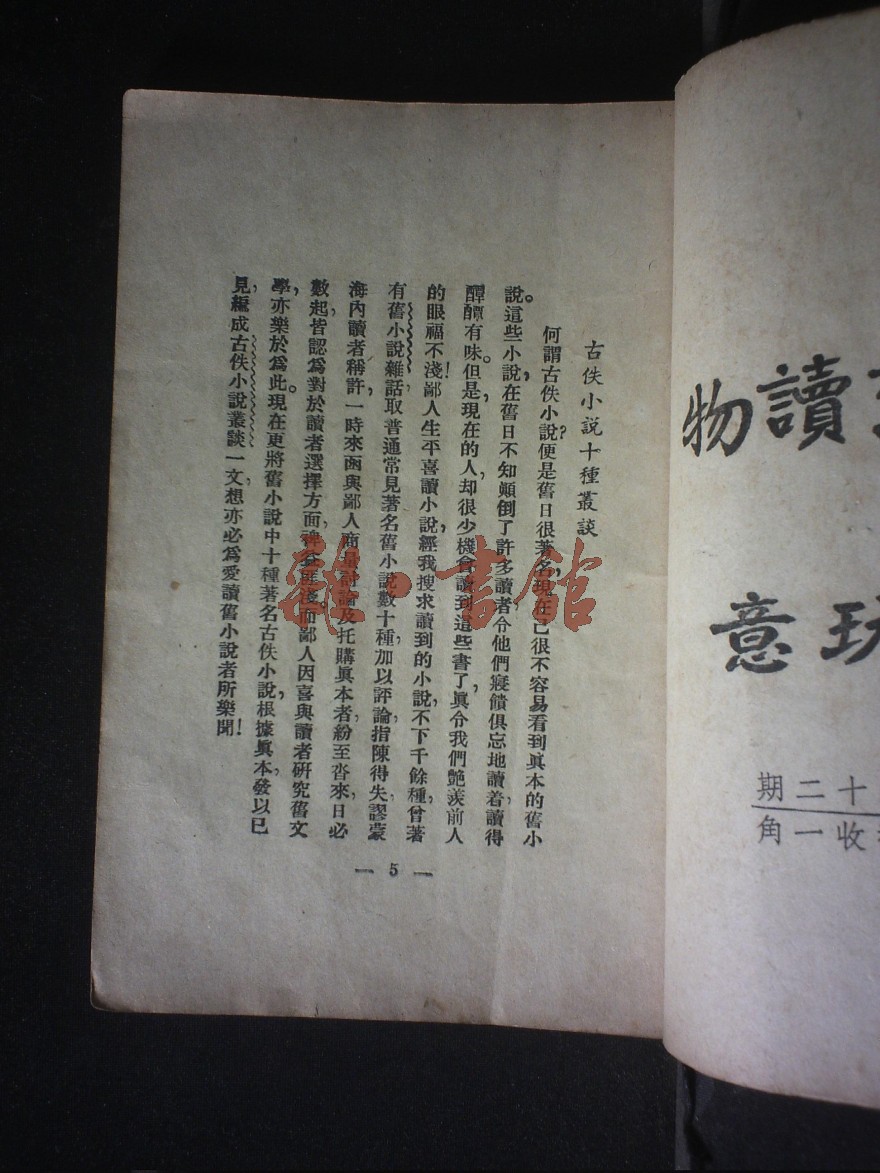 古佚小說十種叢談
何謂古佚小說?便是舊日很著名,現在已很不容易看到眞本的舊小
說。這些小說,在舊日不知顚倒了許多讀者,令他們寢饋俱忘地讀着,讀得
醰醰有味。但是,現在的人,却很少機會讀到這些書了,眞令我們艷羨前人
的眼福不淺!鄙人生平喜讀小說,經我搜求讀到的小說,不下千餘種,曾著
有舊小說雜話,取普通常見著名舊小說數十種,加以評論,指陳得失,謬蒙
海內讀者稱許,一時來函與鄙人商量討論及托購眞本者,紛至沓來,日必
數起,皆認爲對於讀者選擇方面,裨益匪淺。而鄙人因喜與讀者研究舊文
學,亦樂於爲此。現在更將舊小說中十種著名古佚小說,根據眞本,發以已
見,編成古佚小說叢談一文,想亦必爲愛讀舊小說者所樂聞!
— 5 —
讀物
意
十二期
收一角
雜·書館